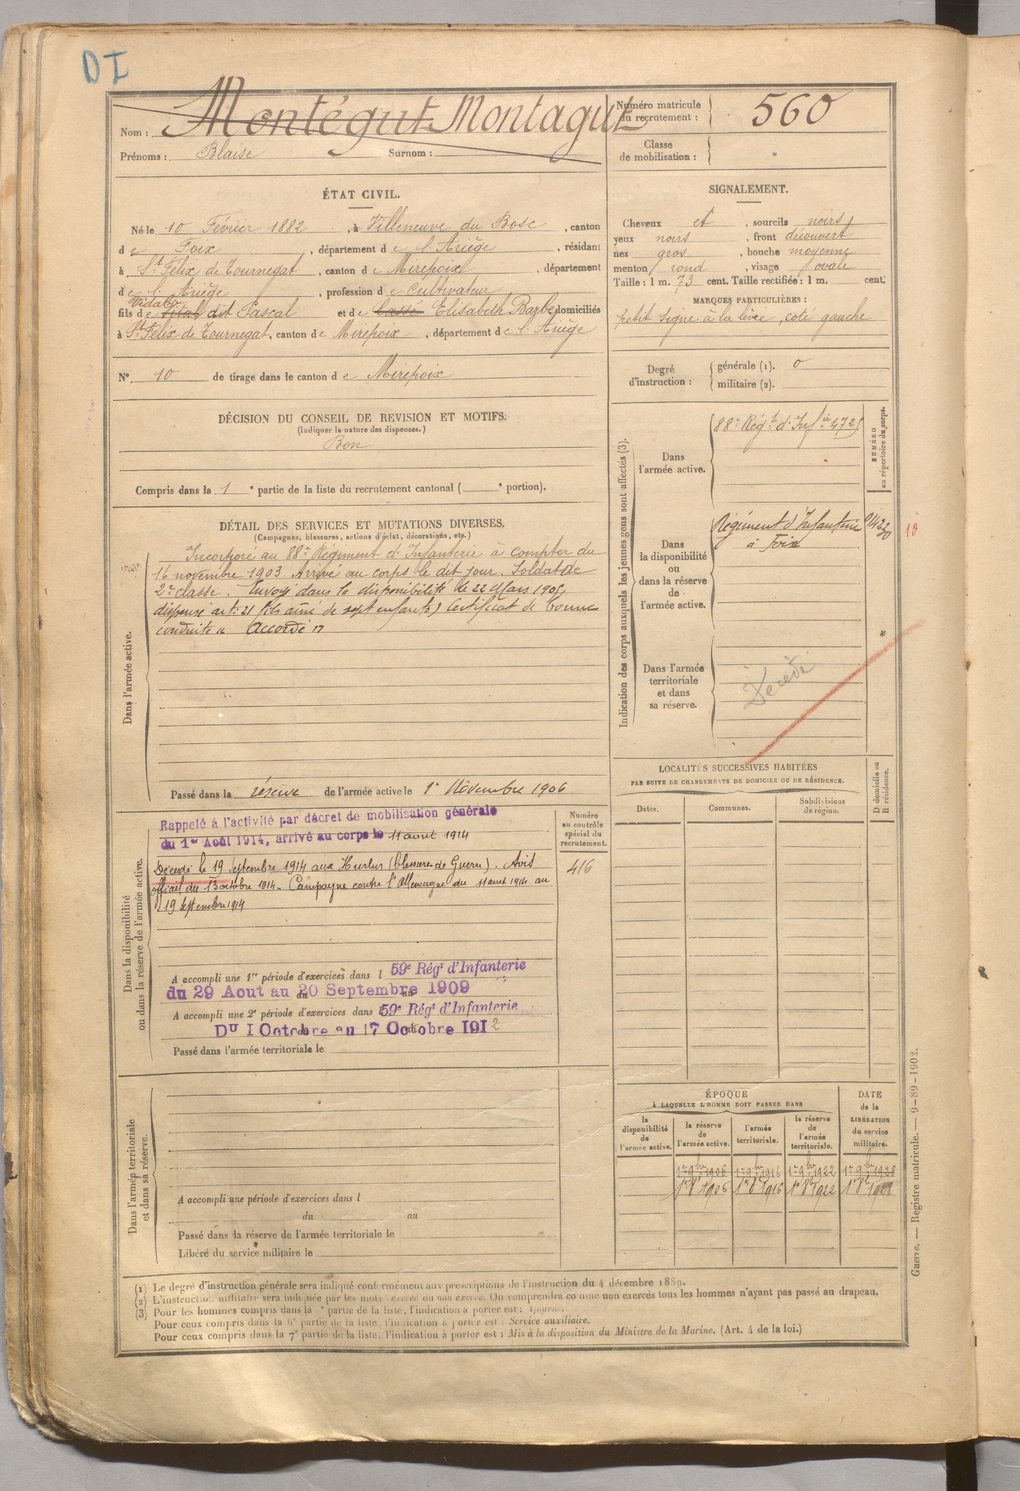 DI
Nom : Montégut Montagut
Prénoms : Blaise Surnom :
Numéro matricule du recrutement : 560
Classe de mobilisation :
ÉTAT CIVIL.
Né le 10 Février 1882, à Villeneuve du Bosc, canton
de Foix, département de l'Ariège, résidant
à St Félix de Tournegat, canton de Mirepoix, département
de l'Ariège, profession de Cultivateur
Vidal
fils de Vital dit Pascal et de Elisabeth Barbe domiciliés
à St Félix de Tournegat, canton de Mirepoix, département de l'Ariège
N° 10 de tirage dans le canton de Mirepoix
DÉCISION DU CONSEIL DE REVISION ET MOTIFS.
(Indiquer la nature des dispenses.)
Bon
Compris dans la 1e partie de la liste du recrutement cantonal ( e portion).
SIGNALEMENT.
Cheveux et, sourcils noirs
yeux noirs, front découvert
nez gros, bouche moyenne
menton rond, visage ovale
Taille : 1 m. 73 cent. Taille rectifiée : 1 m. cent.
MARQUES PARTICULIÈRES :
petit signe à la lèvre, coté gauche
Degré d'instruction : générale (1). 0
militaire (2).
Indication des corps auxquels les jeunes gens sont affectés (3).
NUMÉRO au répertoire du corps.
Dans l'armée active.
88e Régt d'Inf
Dans la disponibilité ou dans la réserve de l'armée active.
Régiment d'Infanterie
à Foix
10
Dans l'armée territoriale et dans sa réserve.
Décédé
DÉTAIL DES SERVICES ET MUTATIONS DIVERSES.
(Campagnes, blessures, actions d'éclat, décorations, etc.)
Dans l'armée active.
Incorporé au 88e Régiment d'Infanterie à compter du
16 novembre 1903. Arrivé au corps le dit jour. Soldat de
2e classe. Envoyé dans la disponibilité le 22 Mars 1905,
dispensé art. 21 (fils ainé de sept enfants) Certificat de bonne
conduite « Accordé »
Passé dans la réserve de l'armée active le 1er Novembre 1906
Dans la disponibilité ou dans la réserve de l'armée active.
Numéro au contrôle spécial du recrutement.
416
Rappelé à l'activité par décret de mobilisation générale
du 1er Août 1914, arrivé au corps le 11 aout 1914
Décédé le 19 Septembre 1914 aux Hurlus (blessures de Guerre). Avis
officiel du 13 octobre 1914. Campagne contre l'Allemagne du 11 aout 1914 au
19 Septembre 1914
A accompli une 1re période d'exercices dans l 59e Régt d'Infanterie
du 29 Aout au 20 Septembre 1909
A accompli une 2e période d'exercices dans l 59e Régt d'Infanterie
DU 1 Octobre au 17 Octobre 1912
Passé dans l'armée territoriale le
Dans l'armée territoriale et dans sa réserve.
A accompli une période d'exercices dans l
du au
Passé dans la réserve de l'armée territoriale le
Libéré du service militaire le
LOCALITÉS SUCCESSIVES HABITÉES
PAR SUITE DE CHANGEMENTS DE DOMICILE OU DE RÉSIDENCE.
D domicile ou R résidence.
Dates. Communes. Subdivisions de région.
ÉPOQUE
À LAQUELLE L'HOMME DOIT PASSER DANS
DATE de la LIBÉRATION du service militaire.
la disponibilité de l'armée active. la réserve de l'armée active. l'armée territoriale. la réserve de l'armée territoriale.
1er 9bre 1906 1er 9bre 1916 1er 9bre 1922 1er 9bre 1928
1er 8bre 1906 1er 8bre 1916 1er 8bre 1922 1er 8bre
Guerre. — Registre matricule. — 9-89-1902.
(1) Le degré d'instruction générale sera indiqué conformément aux prescriptions de l'instruction du 4 décembre 1889.
(2) L'instruction militaire sera indiquée par les mots : exercé ou non exercé. On comprendra comme non exercés tous les hommes n'ayant pas passé au drapeau.
(3) Pour les hommes compris dans la e partie de la liste, l'indication à porter est :
Pour ceux compris dans la 6e partie de la liste, l'indication à porter est : Service auxiliaire.
Pour ceux compris dans la 7e partie de la liste, l'indication à porter est : Mis à la disposition du Ministre de la Marine. (Art. 4 de la loi.)